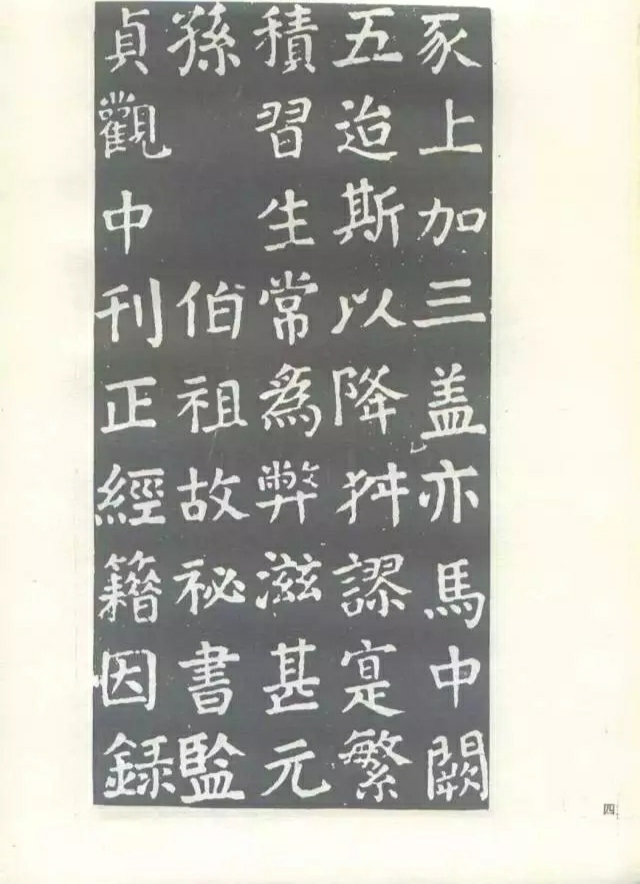 豕上加三盖亦馬中闕
五迨斯以降舛謬寔繁
積習生常為弊滋甚元
孫 伯祖故祕書監
貞觀中刊正經籍因録
四